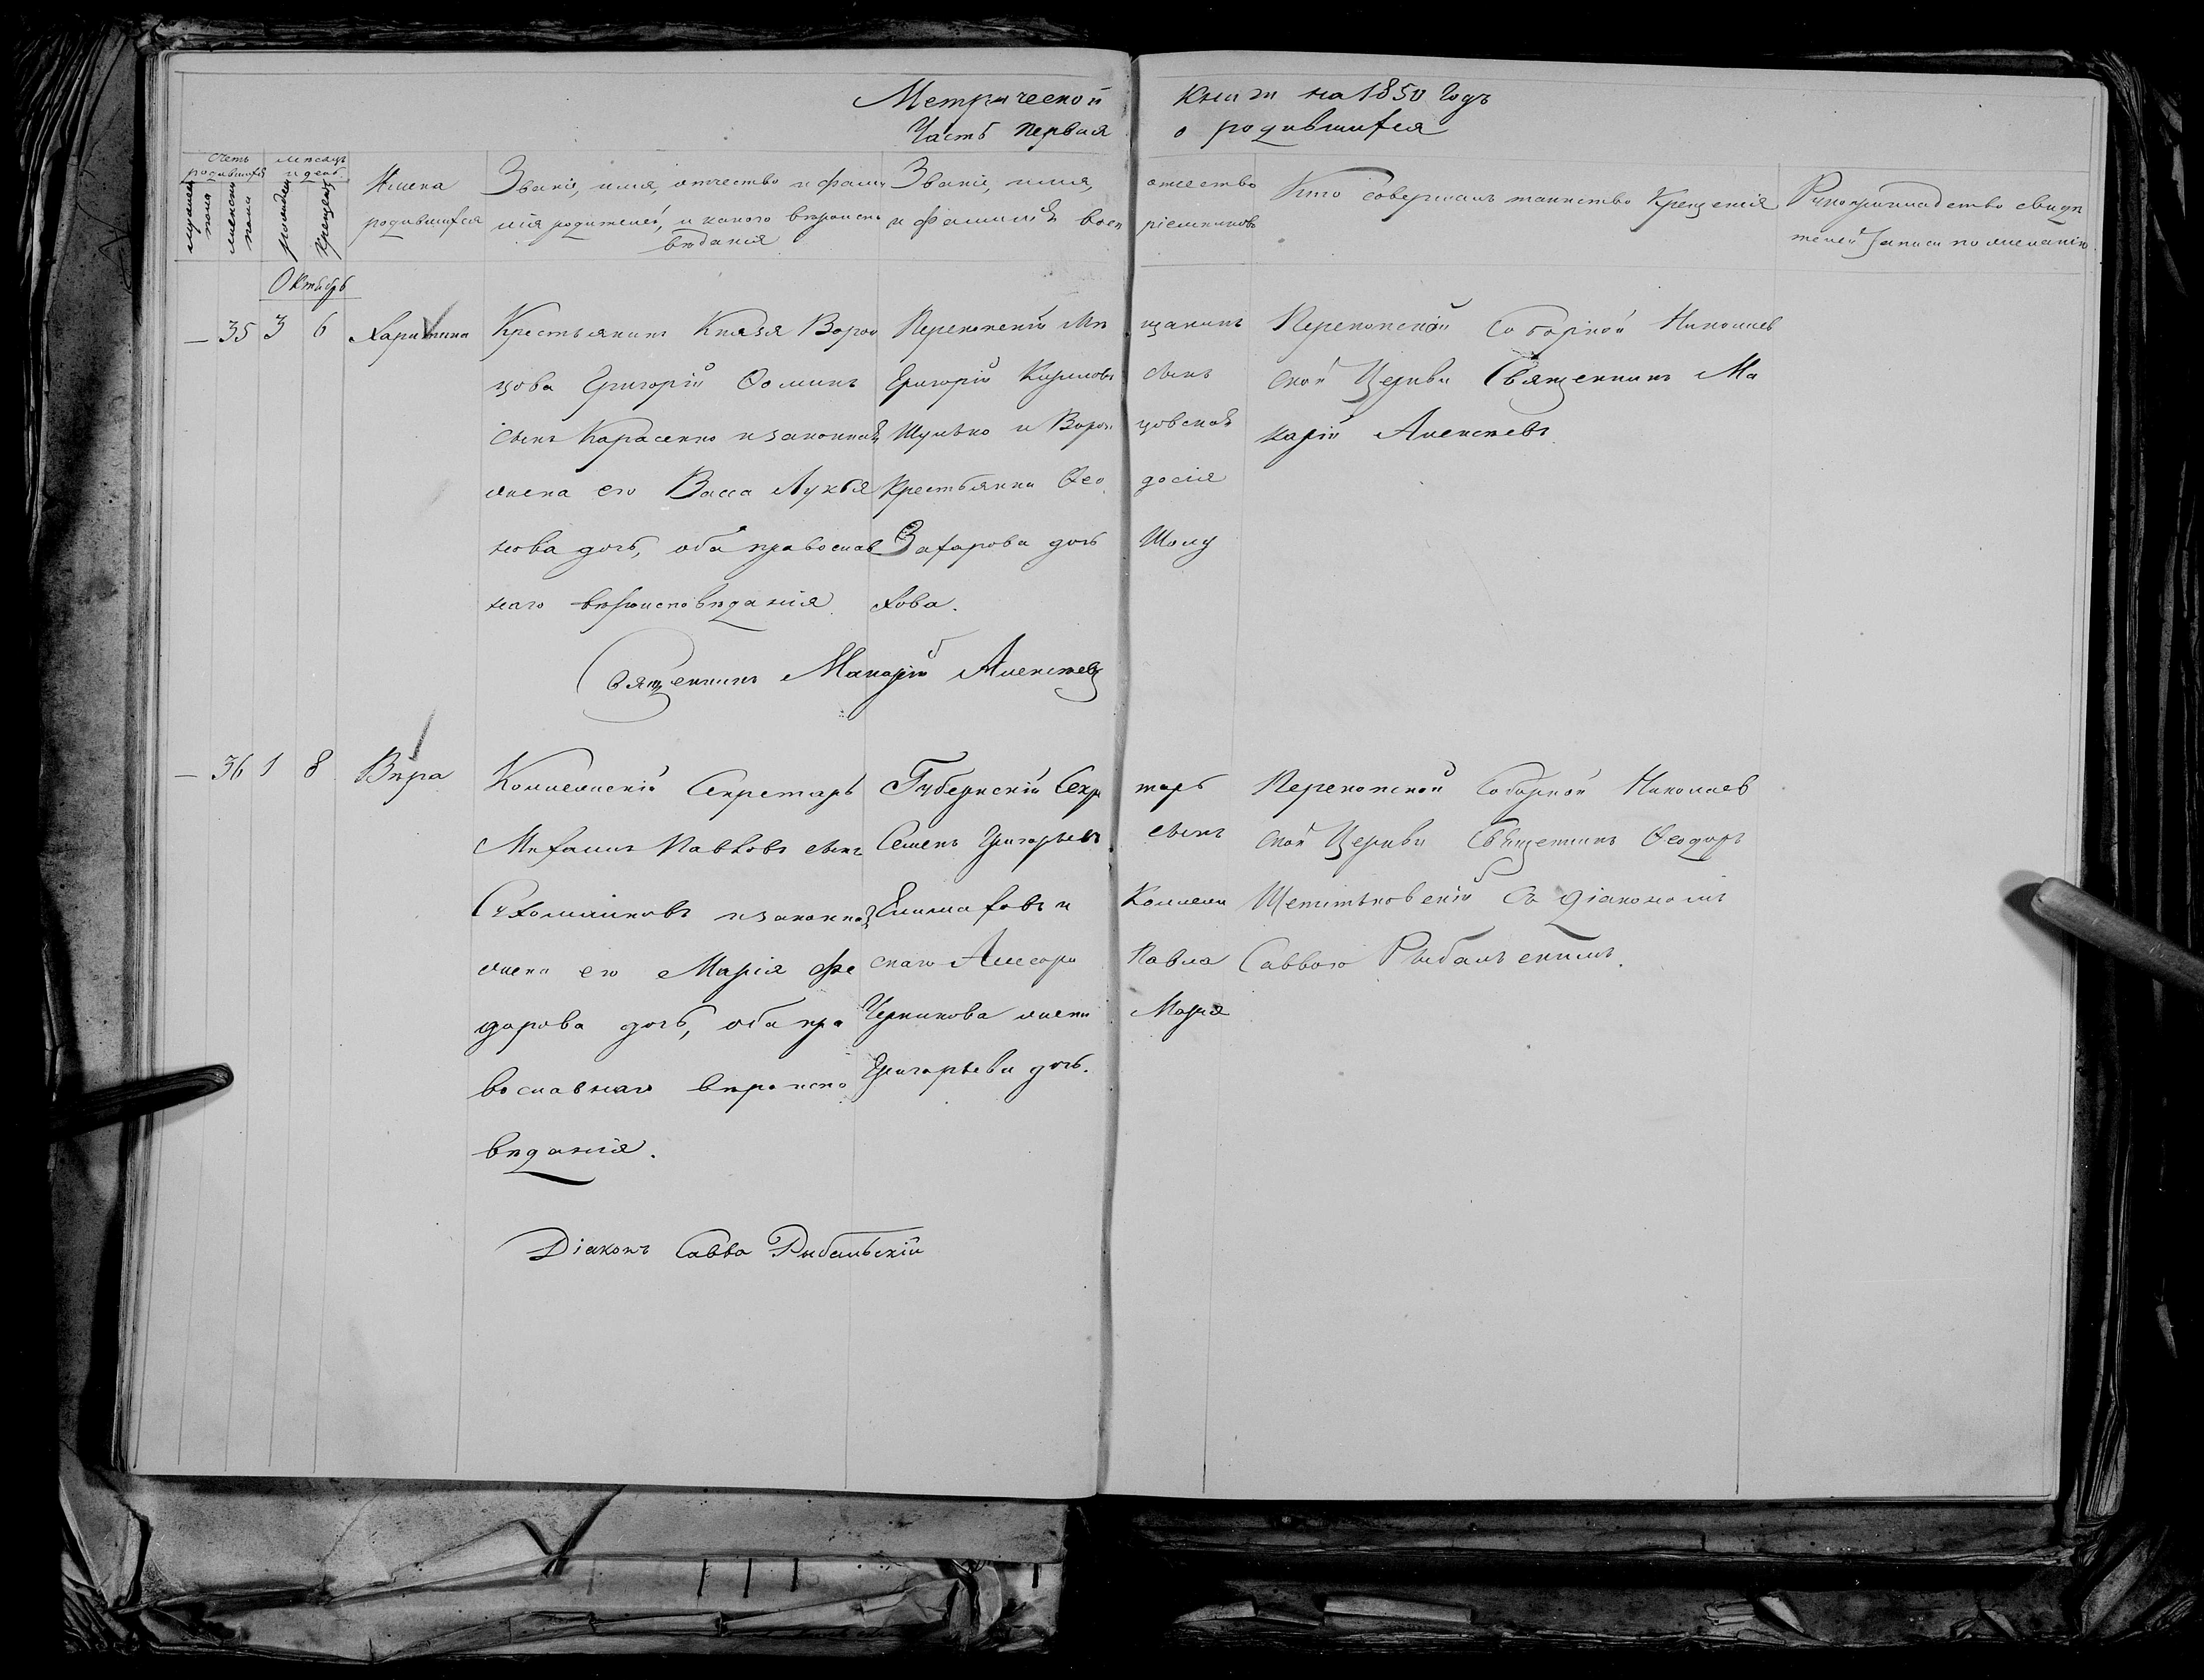 Метрической книги на 1850 Годъ
Часть первая о родившихся
Счетъ родившихся
мужеска пола
женска пола
месяцъ и день
рожденія
крещенія
Имена
родившихся
Званіе, имя, отчество и фами
лія родителей, и какого вѣроиспо
вѣданія
Званіе, имя, отчество
и фамилія воспріемниковъ
Кто совершалъ таинство Крещенія
Рукоприкладство свидѣ
телей записи по желанію
Октябрь
— 35 3 6 Харитина
Крестьянинъ Князя Ворон
цова Григорій Ѳоминъ
сынъ Карасенко и законная
жена его Васса Лукья
нова дочь, оба православ
наго вѣроисповѣданія
Перекопскій Мѣ щанинъ
Григорій Кириловъ сынъ
Шулько и Ворон цовская
Крестьянка Ѳео досія
Захарова дочь Шолу
хова.
Перекопской Соборной Николаев
ской Церкви Священникъ Ма
карій Алексѣевъ
Священникъ Макарій Алексѣевъ
— 36 1 8 Вѣра
Коллежскій Секретарь
Михаилъ Павловъ сынъ
Сухомлиновъ и законная
жена его Марія Ѳе
дорова дочь, оба пра
вославнаго вѣроиспо
вѣданія.
Губернскій Секре тарь
Семенъ Григорьевъ сынъ
и Коллеж
скаго Ассесора Павла
Черникова жена Марія
Григорьева дочь.
Перекопской Соборной Николаев
ской Церкви Священникъ Ѳеодоръ
Щетинковскій съ Діакономъ
Саввою Рыбальскимъ.
Діаконъ Савва Рыбальскій